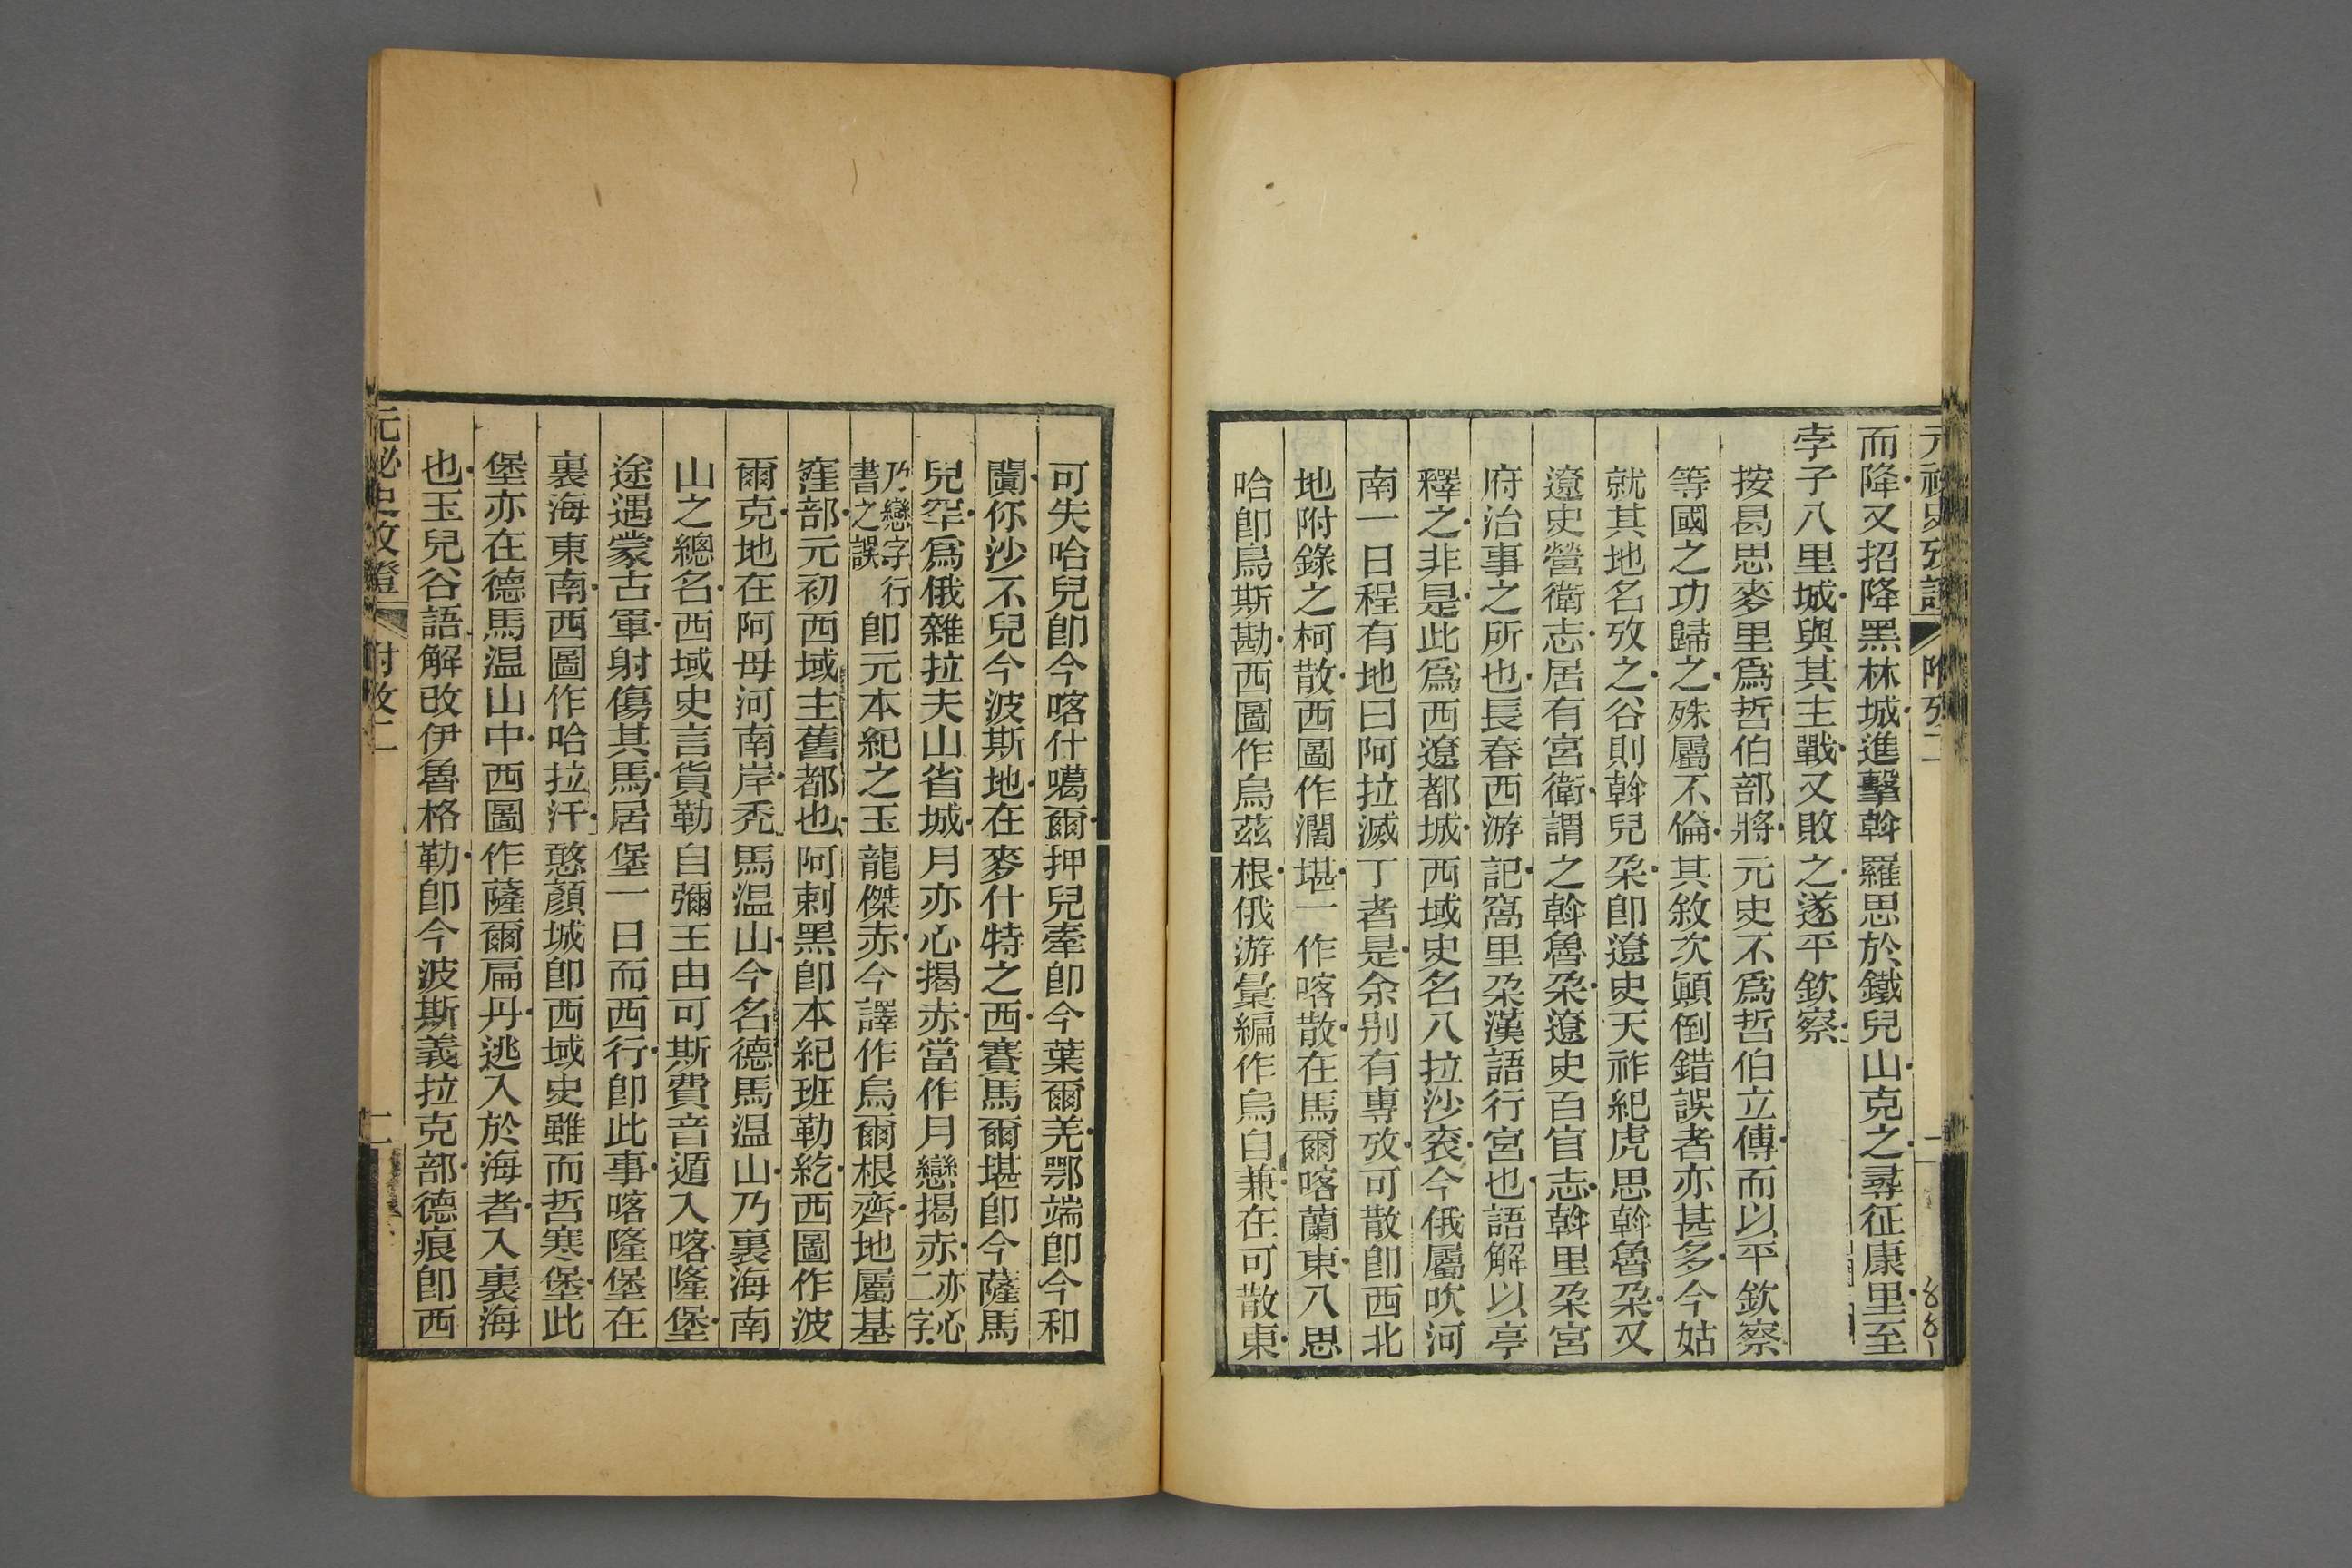 元祕史攷證 附攷二
而降又招降黑林城進擊斡羅思於鐵兒山克之尋征康里至
孛子八里城與其主戰又敗之遂平欽察
按曷思麥里爲哲伯部將元史不爲哲伯立傳而以平欽察
等國之功歸之殊屬不倫其敘次顚倒錯誤者亦甚多今姑
就其地名攷之谷則斡兒朶卽遼史天祚紀虎思斡魯朶又
遼史營衛志居有宮衛謂之斡魯朶遼史百官志斡里朶宮
府治事之所也長春西游記窩里朶漢語行宮也語解以亭
釋之非是此爲西遼都城西域史名八拉沙袞今俄屬吹河
南一日程有地曰阿拉滅丁者是余别有專攷可散卽西北
地附錄之柯散西圖作濶堪一作喀散在馬爾喀蘭東八思
哈卽烏斯勘西圖作烏茲根俄游彙編作烏自兼在可散東
可失哈兒卽今喀什噶爾押兒牽卽今葉爾羌鄂端卽今和
闐你沙不兒今波斯地在麥什特之西賽馬爾堪卽今薩馬
兒罕爲俄雜拉夫山省城月亦心揭赤當作月戀揭赤亦心二字
乃戀字行書之誤卽元本紀之玉龍傑赤今譯作烏爾根齊地屬基
窪部元初西域主舊都也阿剌黑卽本紀班勒紇西圖作波
爾克地在阿母河南岸禿馬温山今名德馬温山乃裏海南
山之總名西域史言貨勒自彌王由可斯費音遁入喀隆堡
途遇蒙古軍射傷其馬居堡一日而西行卽此事喀隆堡在
裏海東南西圖作哈拉汗憨顏城卽西域史雖而哲寒堡此
堡亦在德馬温山中西圖作薩爾扁丹逃入於海者入裏海
也玉兒谷語解改伊魯格勒卽今波斯義拉克部德痕卽西
元祕史攷證 附攷二 二